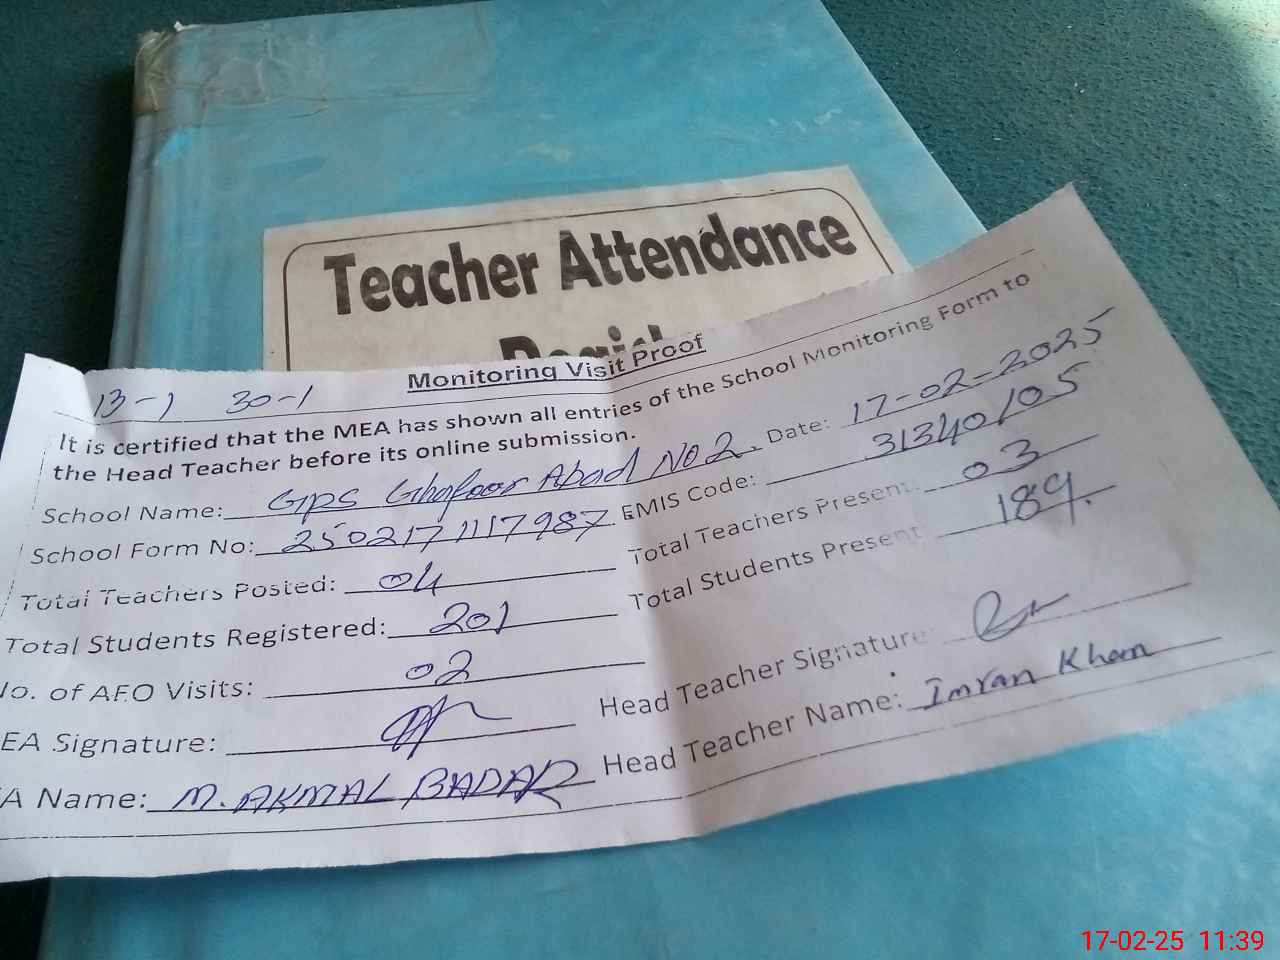 Teacher Attendance
Monitoring Visit Proof
13-1 30-1
It is certified that the MEA has shown all entries of the School Monitoring Form to
the Head Teacher before its online submission.
School Name: GPS Ghafoor Abad No 2. Date: 17-02-2025
School Form No: 2502171117987 EMIS Code: 31340105
Total Teachers Posted: 04 Total Teachers Present: 03
Total Students Registered: 201 Total Students Present: 189.
No. of AEO Visits: 02
EA Signature: Head Teacher Signature:
A Name: M. AKMAL BADAR Head Teacher Name: Imran Khan
17-02-25 11:39